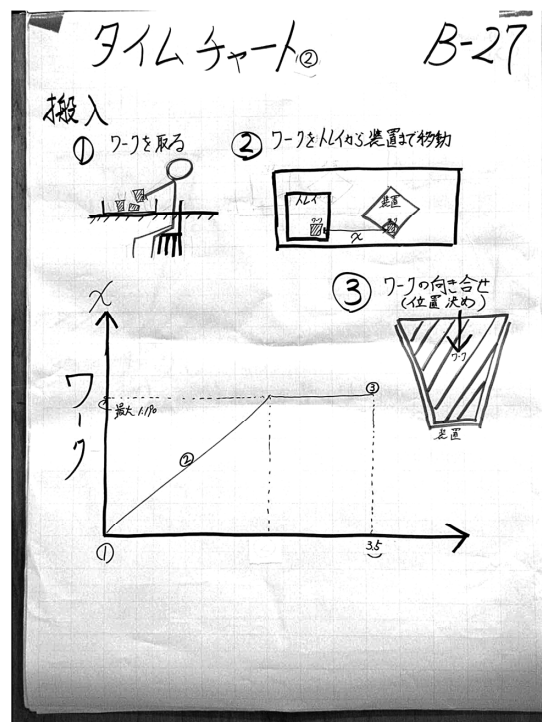 タイムチャート②
B-27
搬入
① ワークを取る
② ワークをトレイから装置まで移動
トレイ
装置
ワーク
x
③ ワークの向き合せ
(位置決め)
ワーク
装置
x
ワーク
最大
②
③
①
3.5